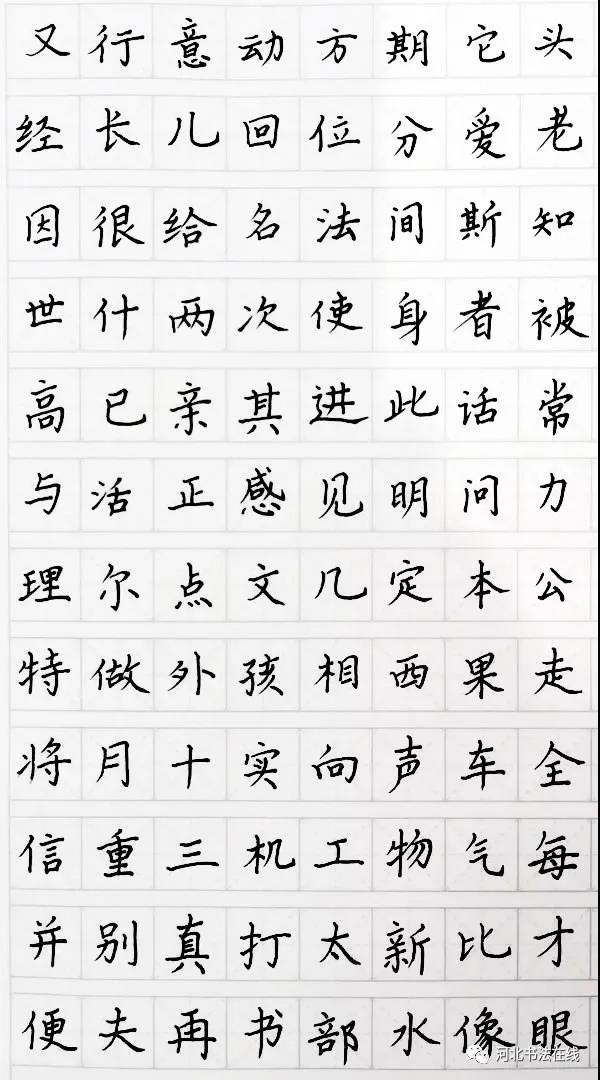 又行意动方期它头
经长儿回位分爱老
因很给名法间斯知
世什两次使身者被
高已亲其进此话常
与活正感见明问力
理尔点文几定本公
特做外孩相西果走
将月十实向声车全
信重三机工物气每
并别真打太新比才
便夫再书部水像眼
河北书法在线